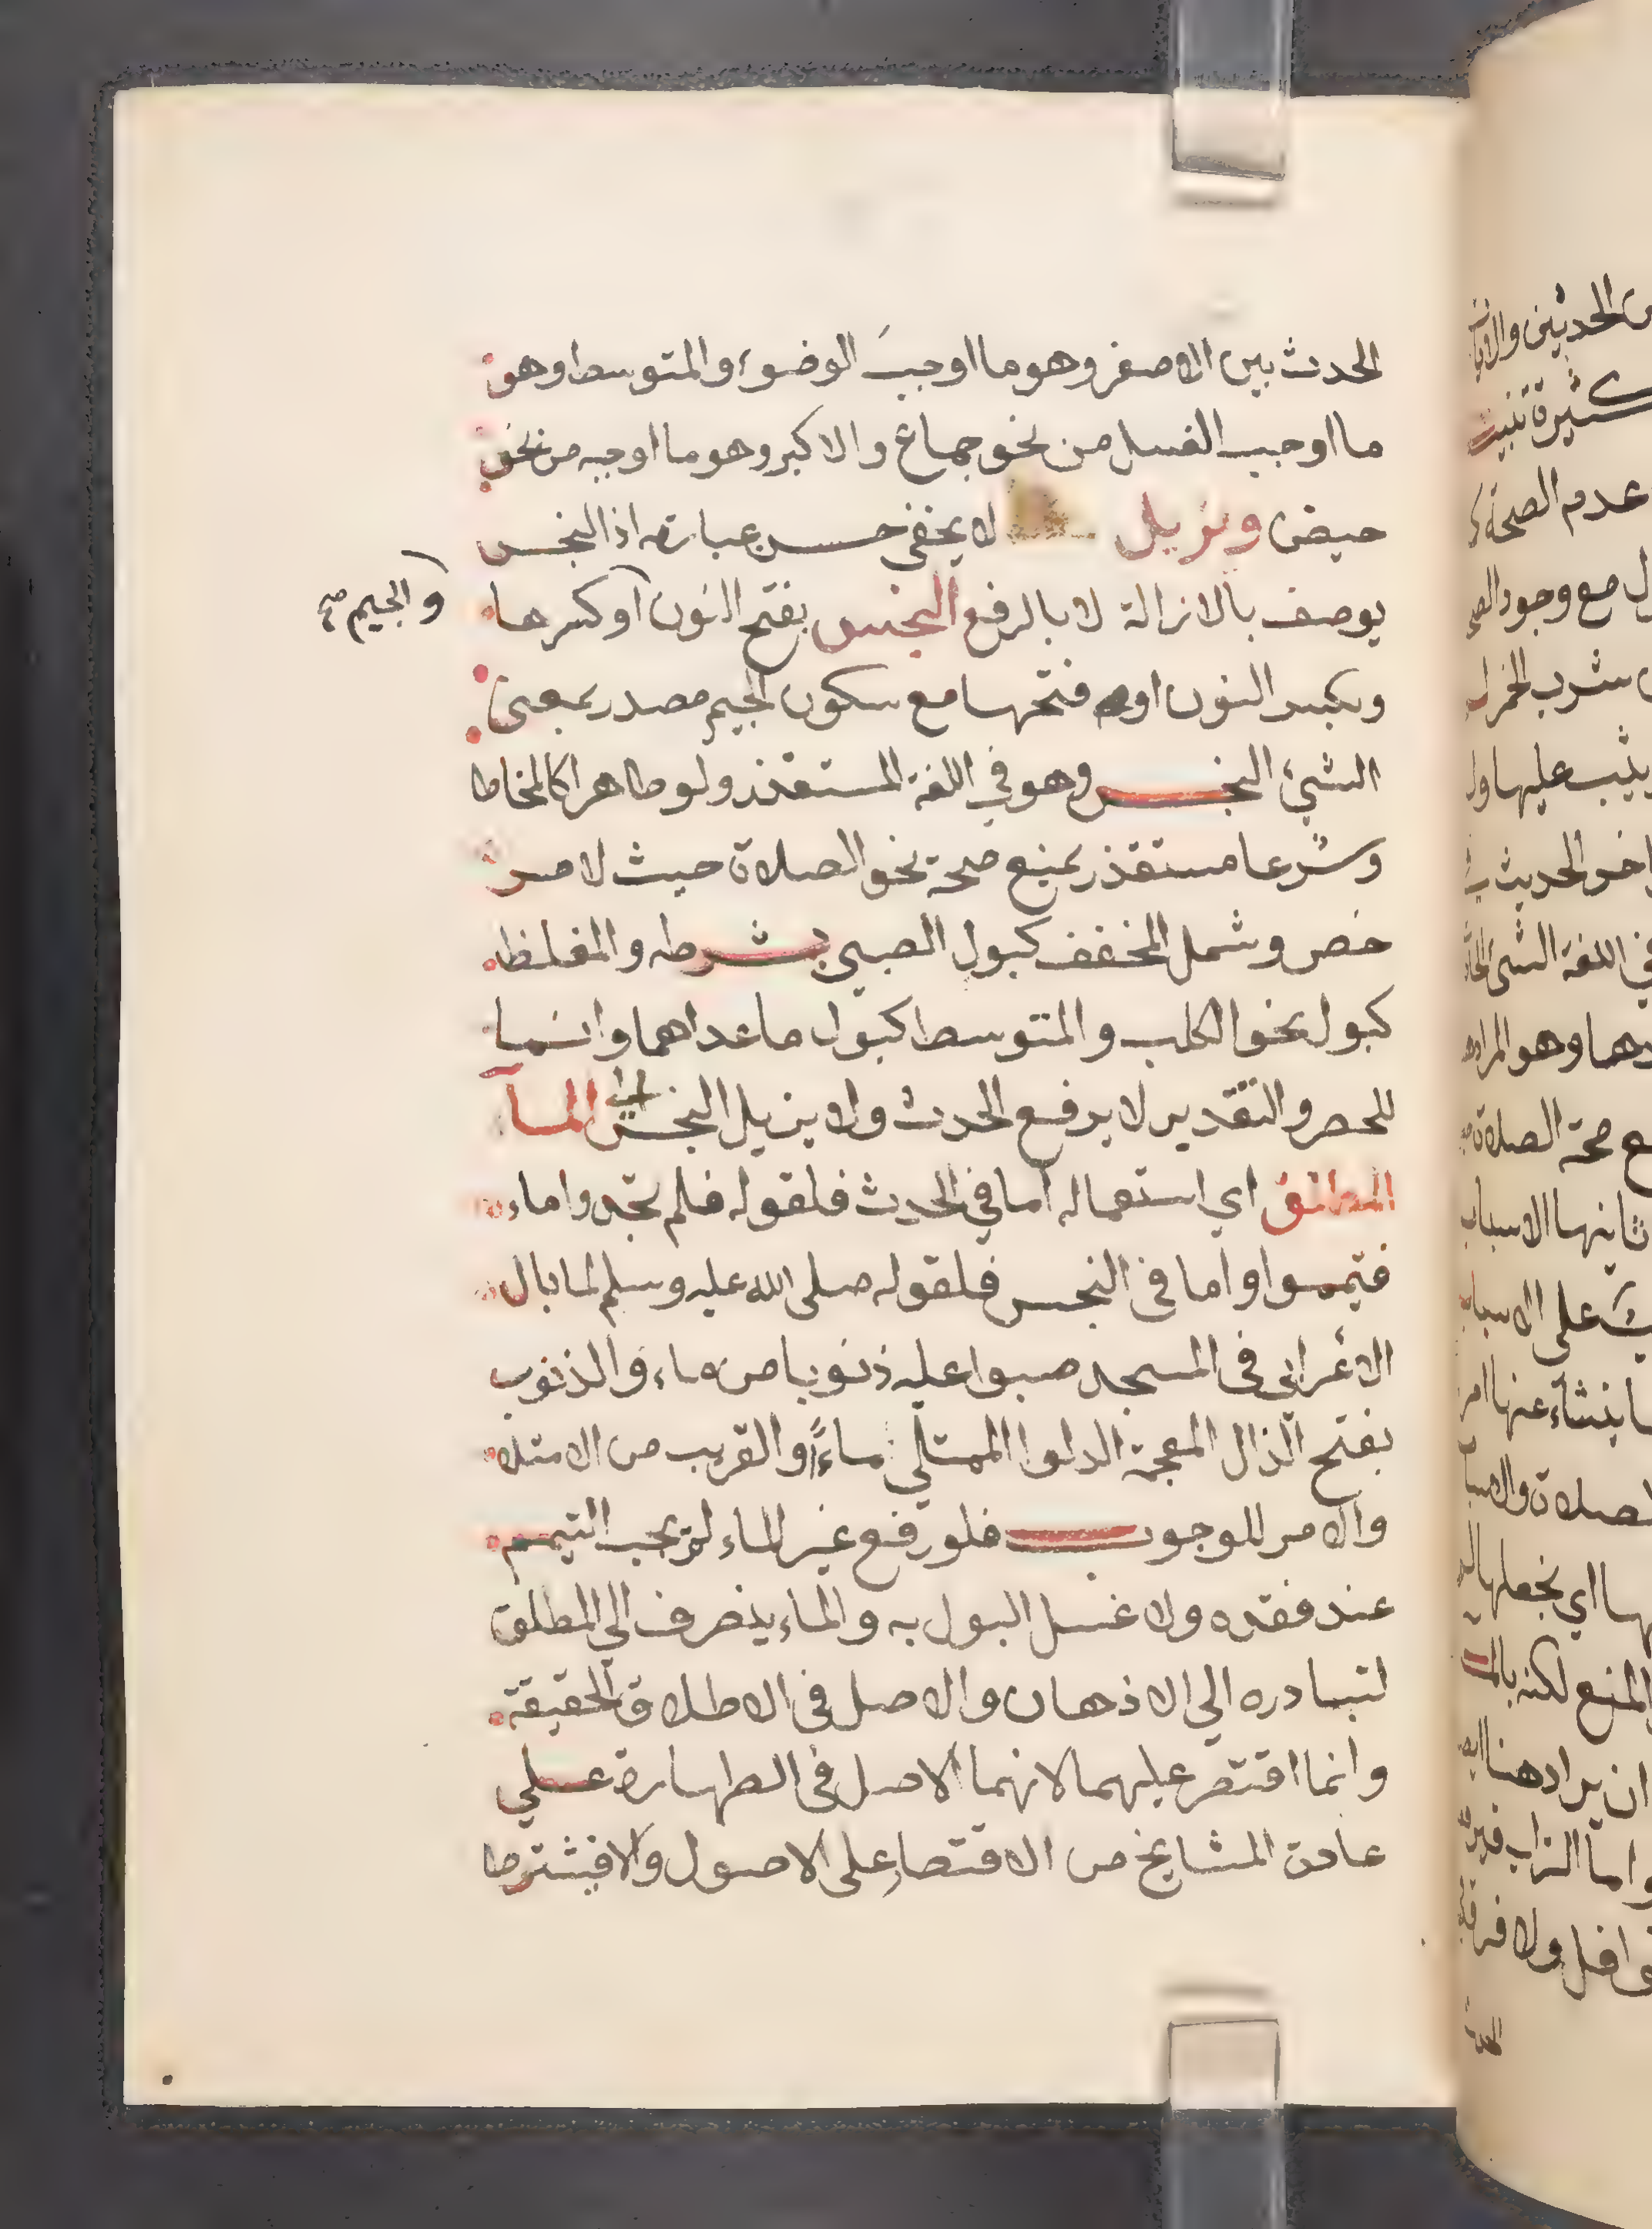 الحدث بين الاصغر وهو ما اوجبَ الوضوء والمتوسط وهو
ما اوجب الغسل من نحو جماع والاكبر وهو ما اوجبه من نحو
حيض ويزيل لا يخفى حسن عبارته اذ النجس
يوصف بالازالة لا بالرفع النجس بفتح النون او كسرها
والجيم صح
وبكسر النون او فتحها مع سكون الجيم مصدر بمعنى
الشيئ النجس وهو في اللغة المستقذر ولو طاهرا كالمخاط
وشرعا مستقذر يمنع صحة نحو الصلاة حيث لا مر
خص وشمل المخفف كبول الصبي بشرطه والمغلظ
كبول نحو الكلب والمتوسط كبول ما عداهما وانما
للحصر والتقدير لا يرفع الحدث ولا يزيل النجس الا المآ
المطلق اي استعماله اما في الحدث فلقوله فلم تجدوا ماء
فتيمموا واما في النجس فلقوله صلى الله عليه وسلم لما بال
الأعرابي في المسجد صبوا عليه ذنوبا من ماء والذنوب
بفتح الذال المعجمة الدلو الممتلي ماءً او القريب من الامتلا
والامر للوجوب فلو رفع غير الماء لم يجب التيمم
عند فقده ولا غسل البول به والماء ينصرف الي المطلق
لتبادره الي الاذهان والاصل في الاطلاق الحقيقة
وانما اقتصر عليهما لانهما الاصل في الطهارة علي
عادة المشايخ من الاقتصار على الاصول والا فيشترط